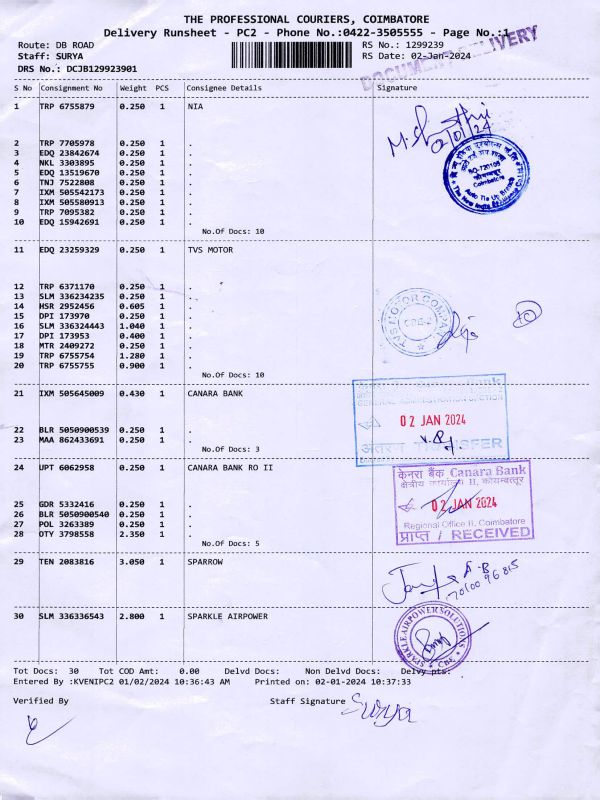 THE PROFESSIONAL COURIERS, COIMBATORE
Delivery Runsheet - PC2 - Phone No.:0422-3505555 - Page No.:1
Route: DB ROAD
RS No.: 1299239
Staff: SURYA
RS Date: 02-Jan-2024
DRS No.: DCJB129923901
DOCUMENT DELIVERY
S No Consignment No Weight PCS Consignee Details Signature
1 TRP 6755879 0.250 1 NIA
02/01/24
2 TRP 7705978 0.250 1 .
3 EDQ 23842674 0.250 1 .
4 KLI 3303895 0.250 1 .
5 EDQ 13519670 0.250 1 .
6 TNJ 7522808 0.250 1 .
7 IXM 505542173 0.250 1 .
8 IXM 505580913 0.250 1 .
9 TRP 7095382 0.250 1 .
10 EDQ 15942691 0.250 1 .
No.Of Docs: 10
NO-720105
Coimbatore
Auto Tie Up Branch
11 EDQ 23259329 0.250 1 TVS MOTOR
12 TRP 6371170 0.250 1 .
13 SLM 336234235 0.250 1 .
14 HSR 2952456 0.605 1 .
15 DPI 173970 0.250 1 .
16 SLM 336324443 1.040 1 .
17 DPI 173953 0.400 1 .
18 MTR 2409272 0.250 1 .
19 TRP 6755754 1.280 1 .
20 TRP 6755755 0.900 1 .
No.Of Docs: 10
TVS MOTOR COMPANY
21 IXM 505645009 0.430 1 CANARA BANK
22 BLR 5050900539 0.250 1 .
23 MAA 862433691 0.250 1 .
No.Of Docs: 3
GENERAL ADMINISTRATION SECTION
02 JAN 2024
अंतरण TRANSFER
24 UPT 6062958 0.250 1 CANARA BANK RO II
25 GDR 5332416 0.250 1 .
26 BLR 5050900540 0.250 1 .
27 POL 3263389 0.250 1 .
28 OTY 3798558 2.350 1 .
No.Of Docs: 5
केनरा बैंक Canara Bank
क्षेत्रीय कार्यालय II, कोयम्बत्तूर
02 JAN 2024
Regional Office II, Coimbatore
प्राप्त / RECEIVED
29 TEN 2083816 3.050 1 SPARROW
30 SLM 336336543 2.800 1 SPARKLE AIRPOWER
SPARKLE AIRPOWER SOLUTIONS
CBE
Tot Docs: 30 Tot COD Amt: 0.00 Delvd Docs: Non Delvd Docs: Delvy pts:
Entered By :KVENIPC2 01/02/2024 10:36:43 AM Printed on: 02-01-2024 10:37:33
Verified By
Staff Signature Surya